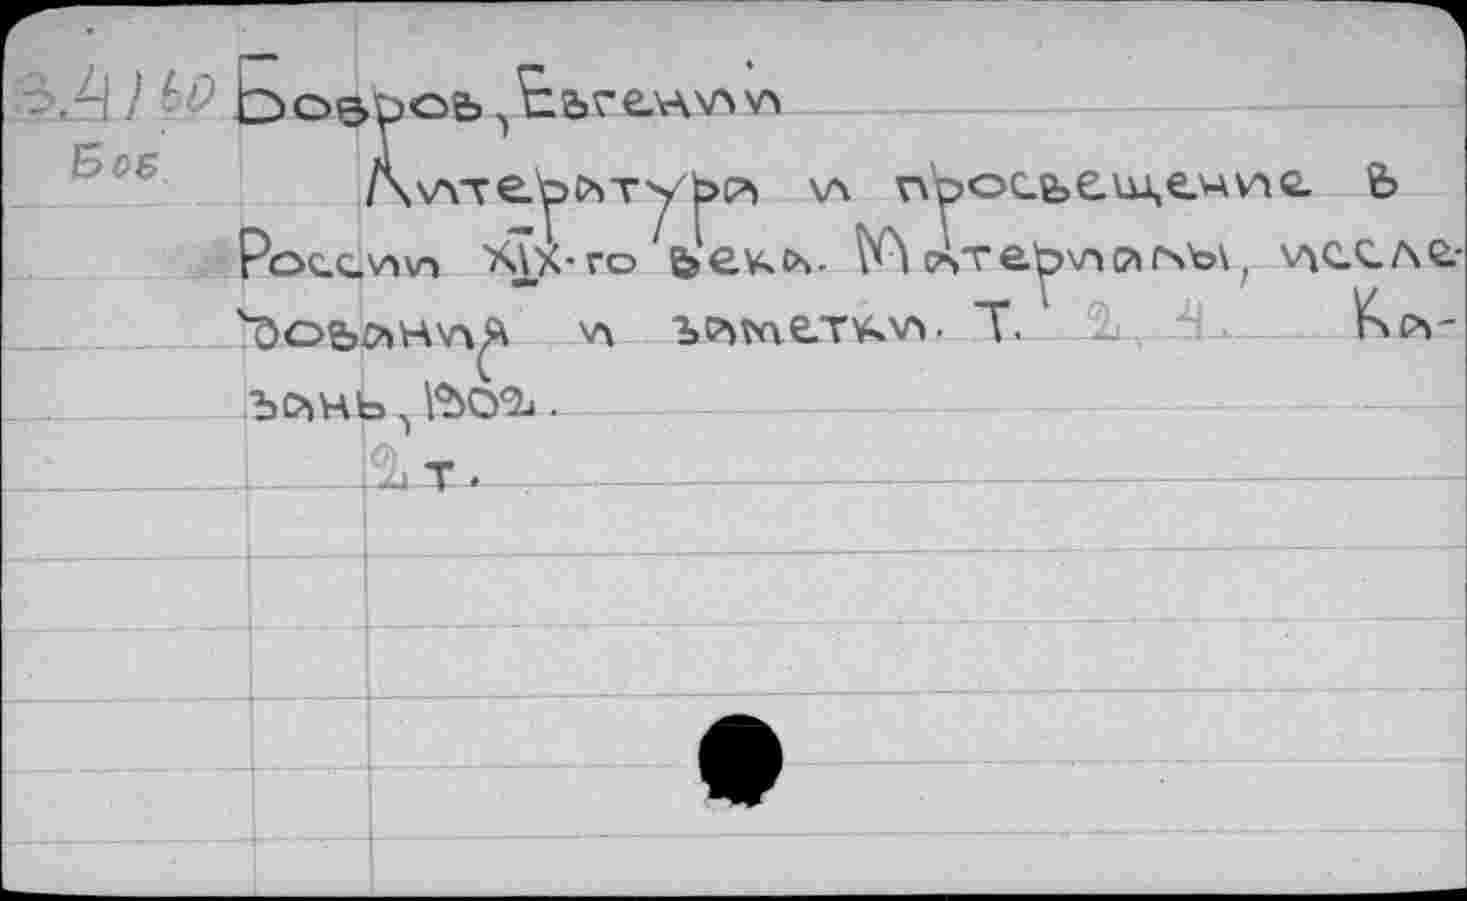 Бобров, Евгении
Боб
Литература и просвещение в
России XIX-го века. Материалы, иссле-
дования и заметки. Т. 2. Ка-
зань, 1902.
2 т.